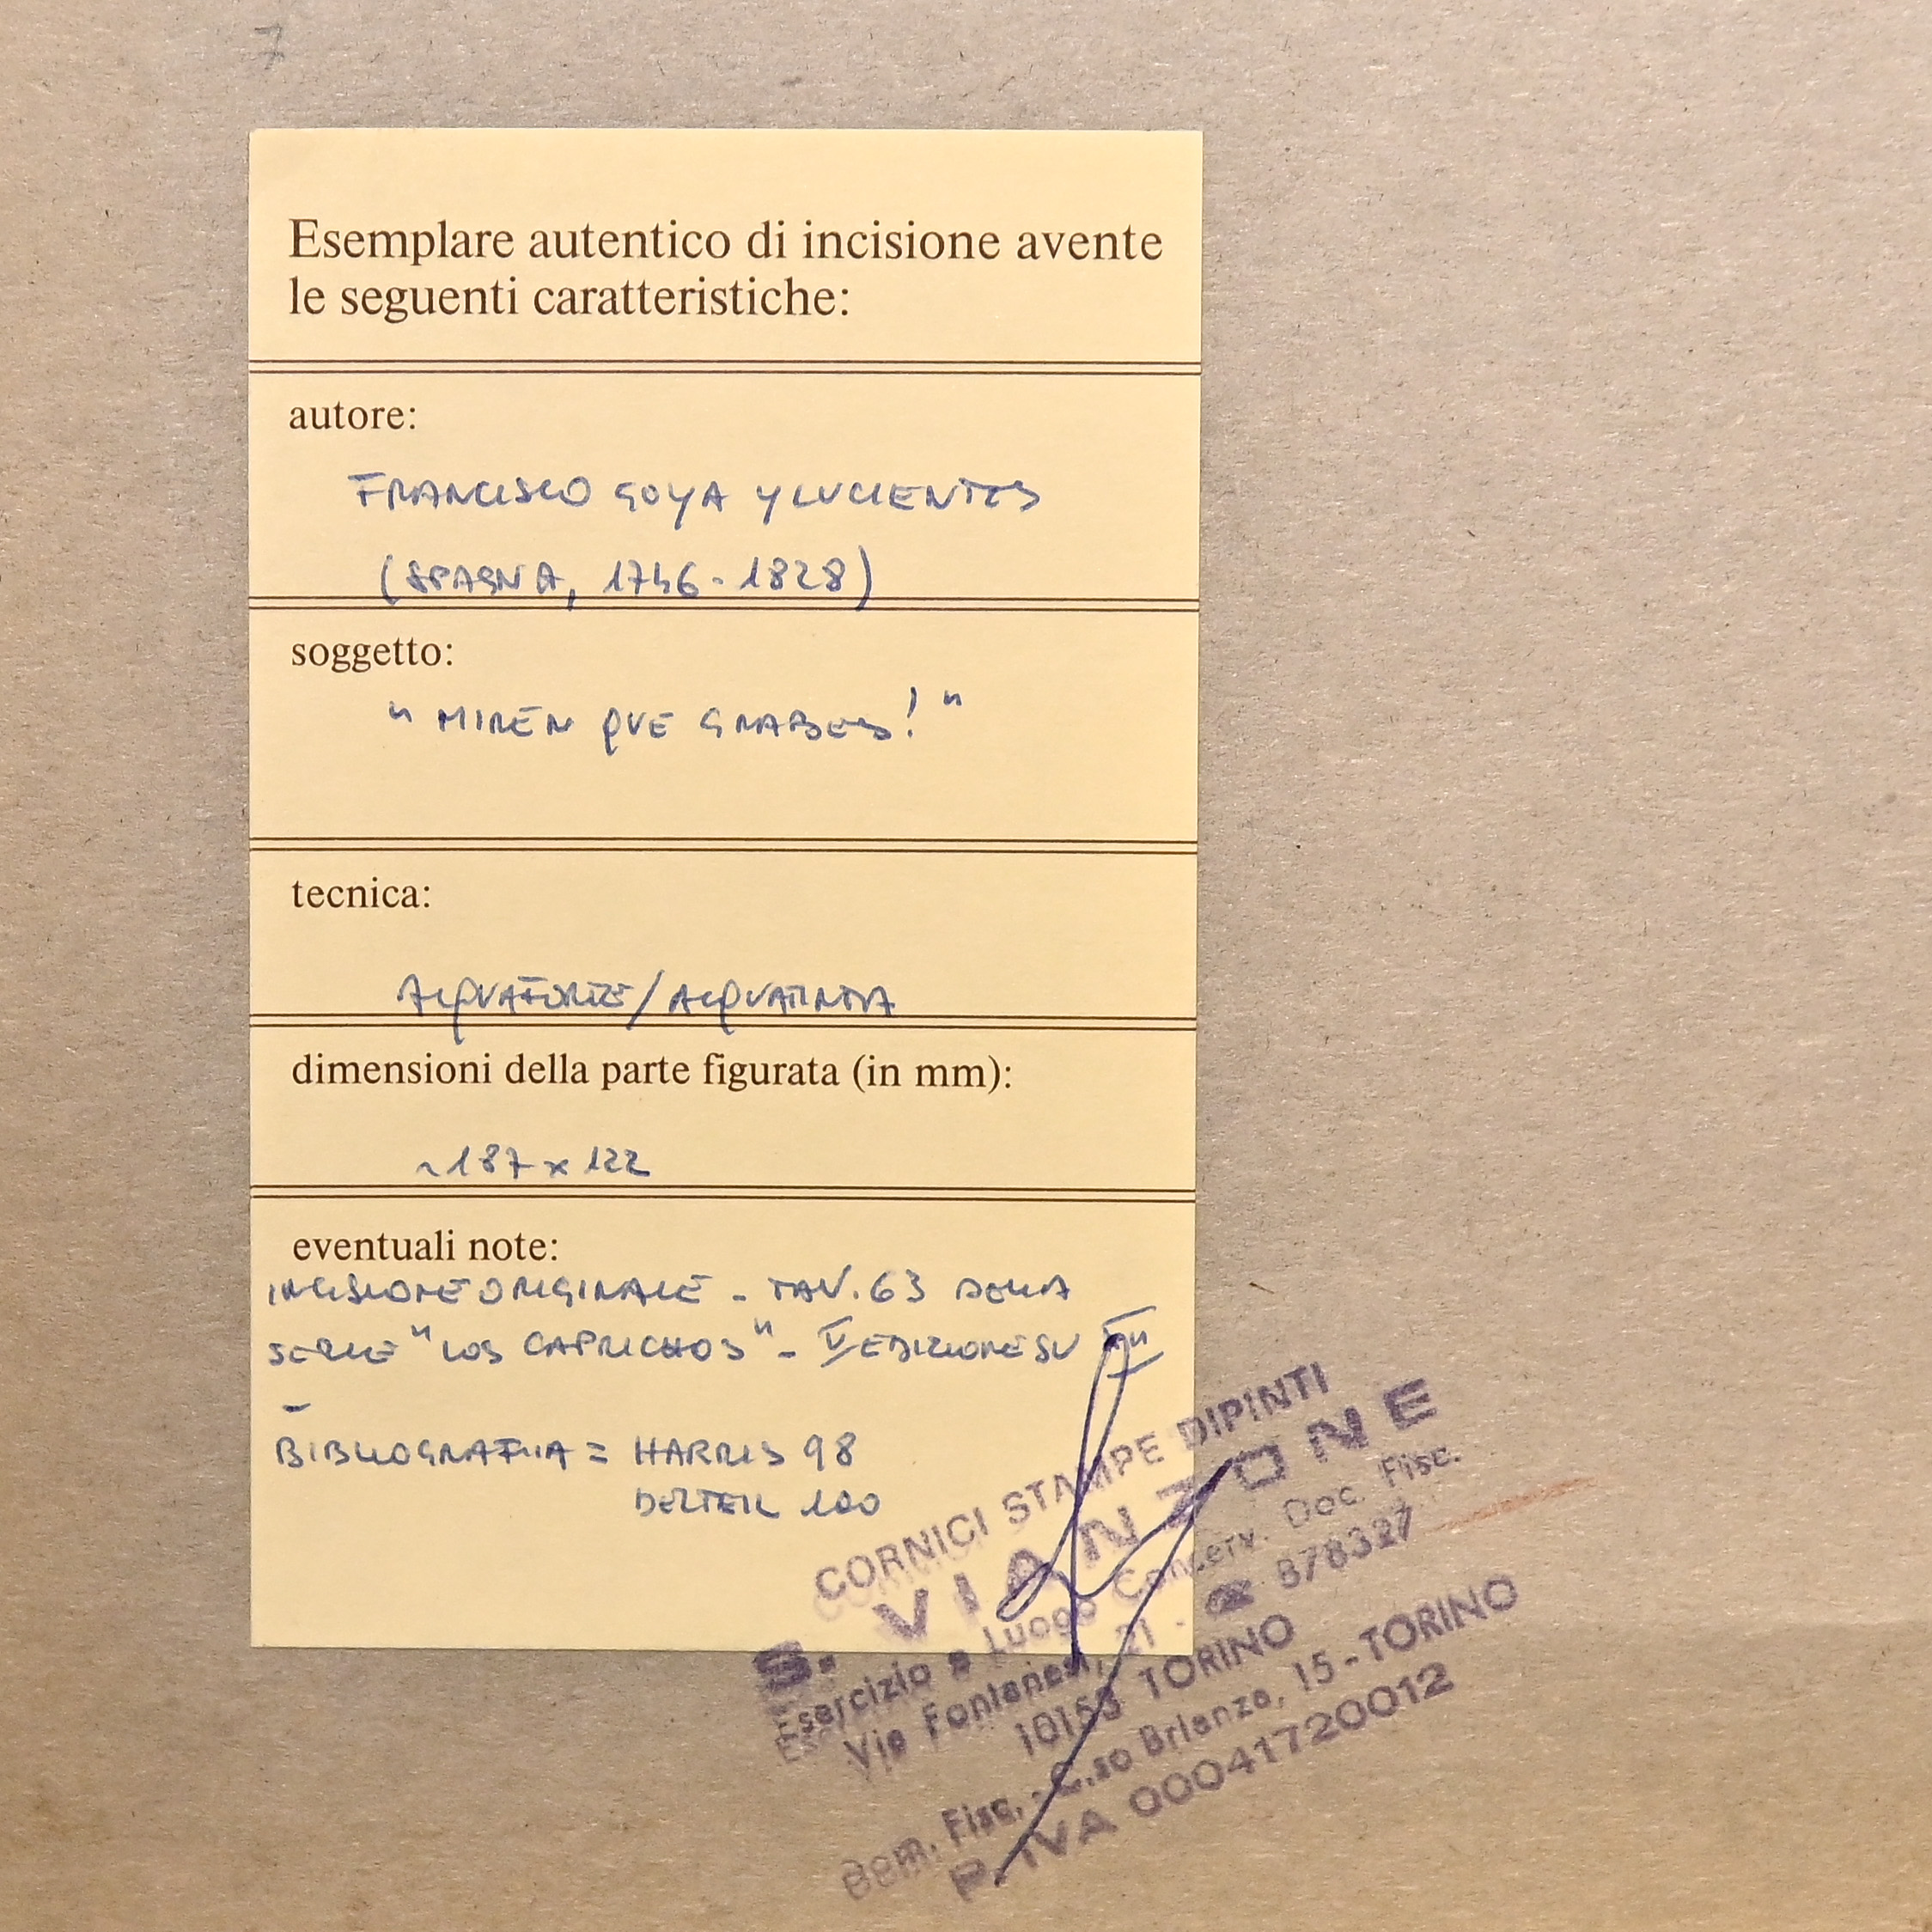 7
Esemplare autentico di incisione avente
le seguenti caratteristiche:
autore:
FRANCISCO GOYA Y LUCIENTES
(SPAGNA, 1746-1828)
soggetto:
"MIREN QUE GRABES!"
tecnica:
ACQUAFORTE/ACQUATINTA
dimensioni della parte figurata (in mm):
~187x122
eventuali note:
INCISIONE ORIGINALE - TAV. 63 DELLA
SERIE "LOS CAPRICHOS" - V EDIZIONE SU
-
BIBLIOGRAFIA = HARRIS 98
DELTEIL 100
CORNICI STAMPE DIPINTI
S. VIANZONE
Esercizio e Luogo Conserv. Doc. Fisc.
Via Fontanesi, 21 - ☎ 878327
10153 TORINO
Dom. Fisc. - C.so Brianza, 15 - TORINO
P. IVA 00041720012